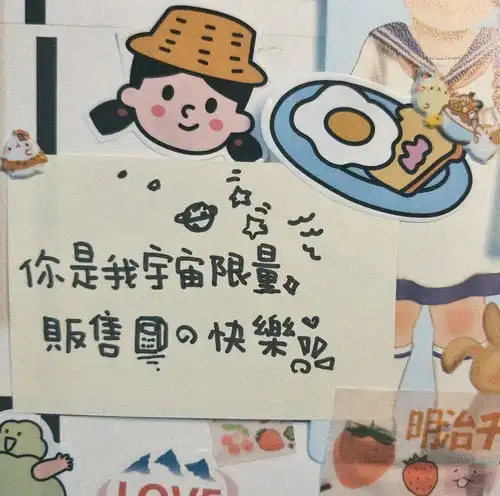 你是我宇宙限量
販售圓の快樂
明治
LOVE